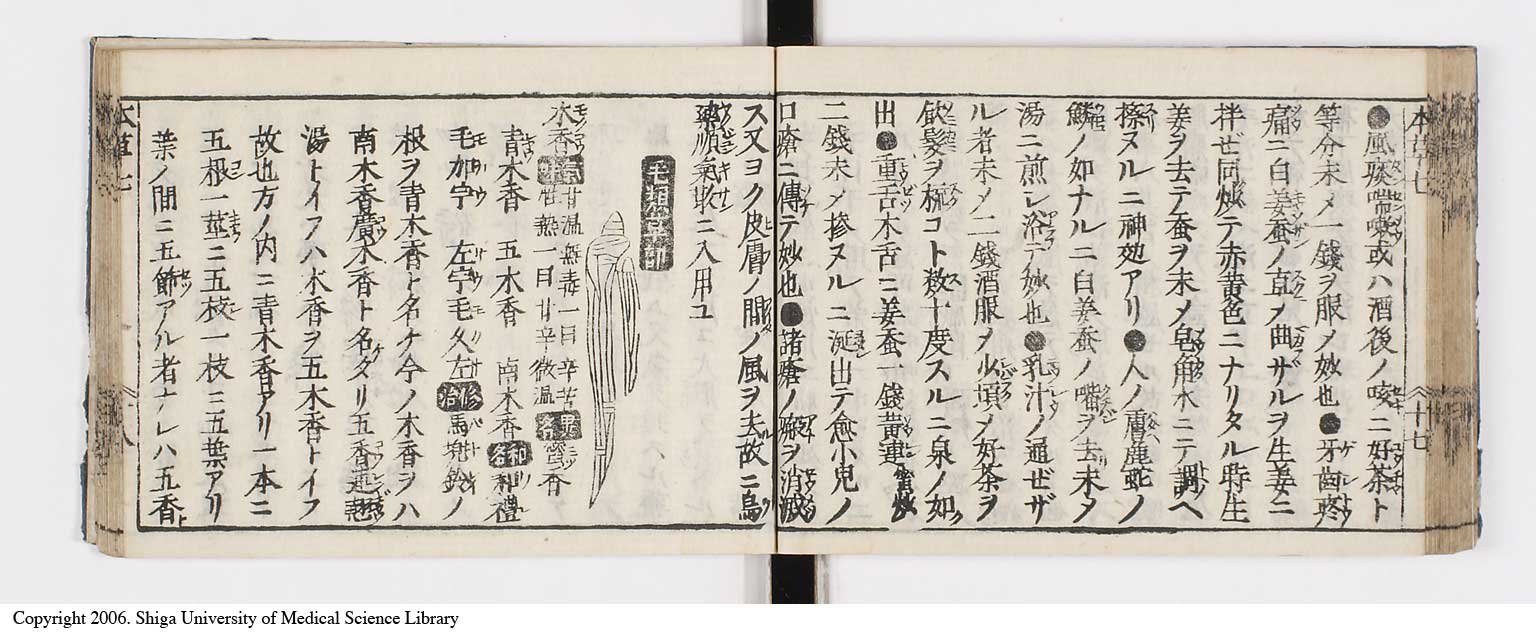 本草七
十七
●風痰喘嗽或ハ酒後ノ咳ニ好茶ト
等分末メ一錢ヲ服メ妙也●牙齒疼
痛ニ白姜蚕ノ直メ曲ザルヲ生姜ニ
拌ゼ同炒テ赤黄色ニナリタル時生
姜ヲ去テ蚕ヲ末メ皂角水ニテ調ヘ
擦ヌルニ神効アリ●人ノ膚鹿蛇ノ
鱗ノ如ナルニ白姜蚕ノ嘴ヲ去末メ
湯ニ煎レ浴テ妙也●乳汁ノ通ゼザ
ル者末メ二錢酒服メ少頃メ好茶ヲ
飲髪ヲ梳コト数十度スルニ泉ノ如
出●重舌木舌ニ姜蚕一錢黄連蜜炒
二錢末メ摻ヌルニ涎出テ愈小兒ノ
口瘡ニ傳テ妙也●諸瘡ノ瘢ヲ消滅
ス又ヨク皮膚ノ間ノ風ヲ去故ニ烏
藥順氣散ニ入用ユ
芳艸部
木香 氣味 甘温無毒一曰辛苦
一曰甘辛微温 異名 蜜香
青木香 五木香 南木香 和名
毛加宁 左宁毛久左 修治 馬兜鈴ノ
根ヲ青木香ト名ケ今ノ木香ヲハ
南木香廣木香ト名タリ五香連翹
湯トイフハ木香ヲ五木香トイフ
故也方ノ内ニ青木香アリ一本ニ
五根一莖ニ五枝一枝ニ五葉アリ
葉ノ間ニ五節アル者ナレハ五香
本草七
十八
Copyright 2006. Shiga University of Medical Science Library